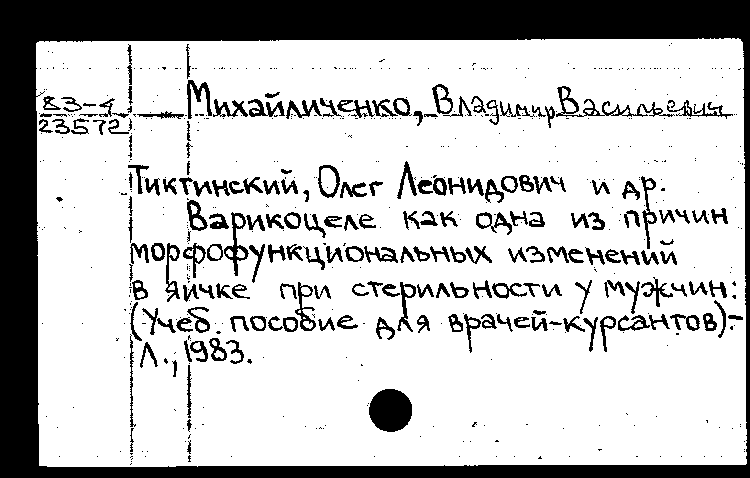 83-4
23572
Михайличенко, Владимир Васильевич
Тиктинский, Олег Леонидович и др.
Варикоцеле как одна из причин
морфофункциональных изменений
в яичке при стерильности у мужчин:
(Учеб. пособие для врачей-курсантов).-
Л., 1983.